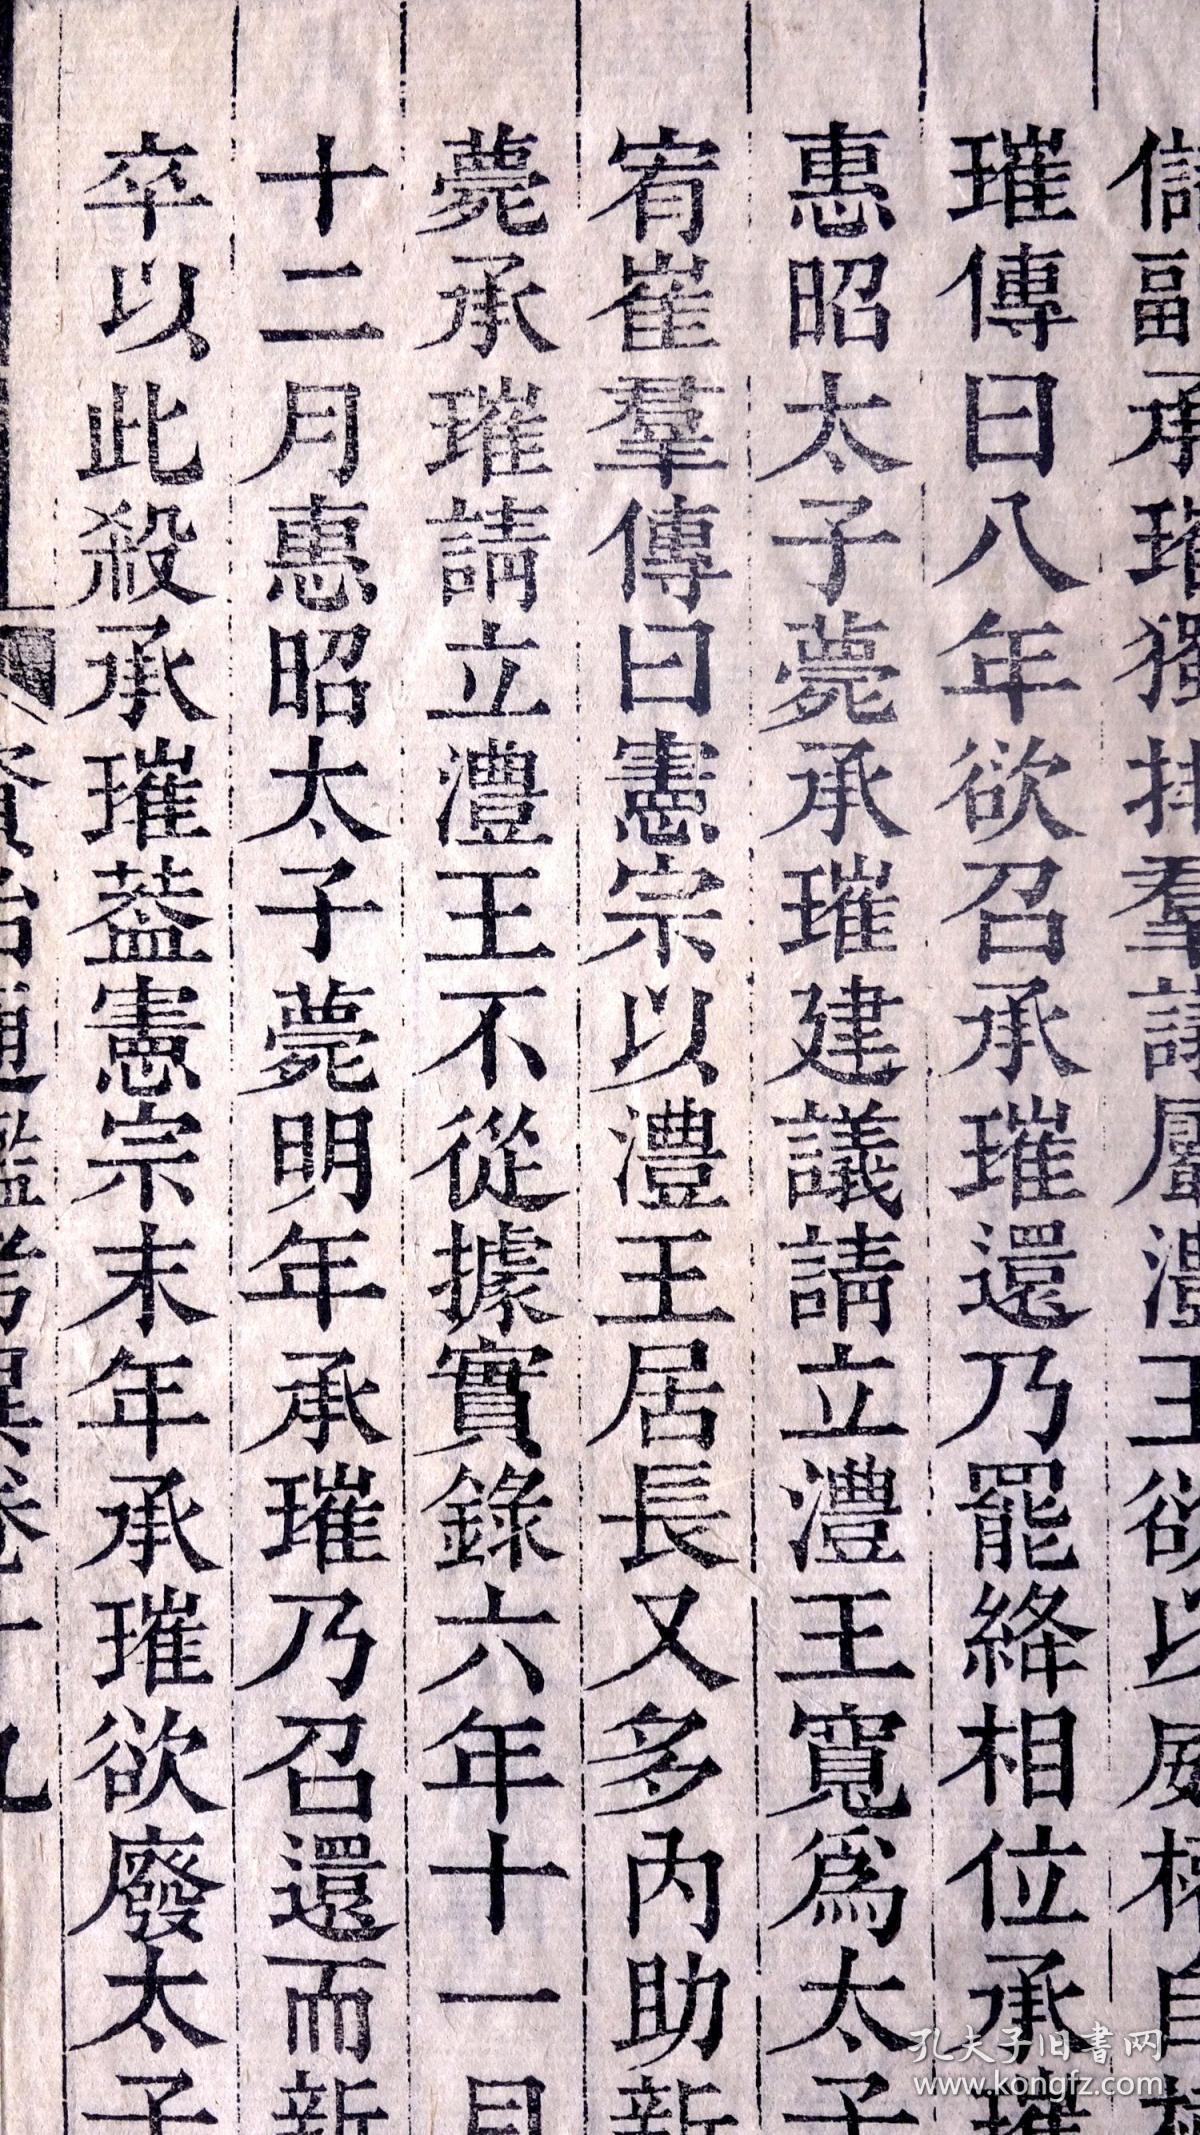 儲副承璀獨排羣議屬澧王欲以威權自
璀傳曰八年欲召承璀還乃罷絳相位承璀
惠昭太子薨承璀建議請立澧王寬爲太子
宥崔羣傳曰憲宗以澧王居長又多內助新
薨承璀請立澧王不從據實錄六年十一月
十二月惠昭太子薨明年承璀乃召還而新
卒以此殺承璀葢憲宗末年承璀欲廢太子
資治通鑑考異卷十九
孔夫子旧书网
www.kongfz.com